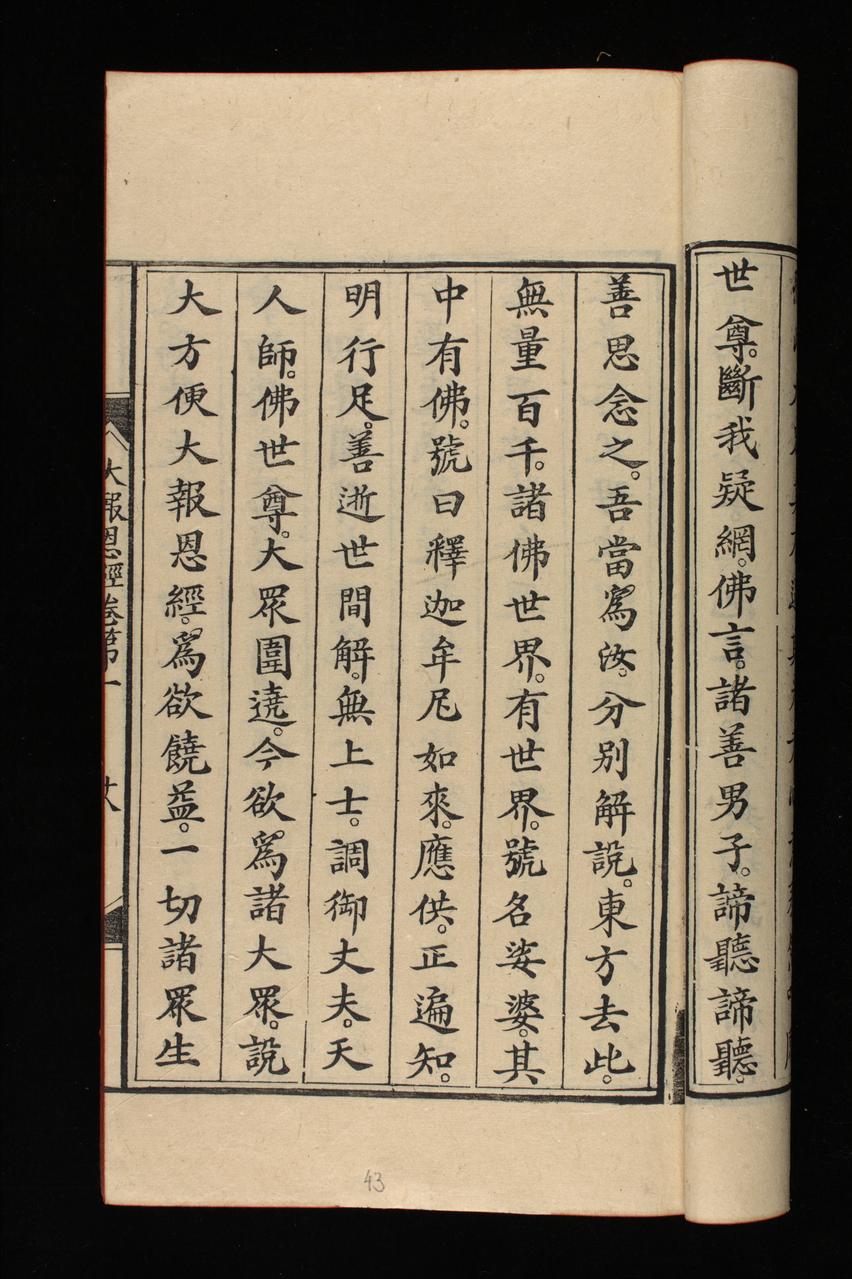 世尊。斷我疑網。佛言。諸善男子。諦聽諦聽。
善思念之。吾當爲汝。分別解說。東方去此。
無量百千。諸佛世界。有世界。號名娑婆。其
中有佛。號曰釋迦牟尼如來。應供。正遍知。
明行足。善逝世間解。無上士。調御丈夫。天
人師。佛世尊。大眾圍遶。今欲爲諸大眾。說
大方便大報恩經。爲欲饒益。一切諸眾生
大報恩經卷第一
43